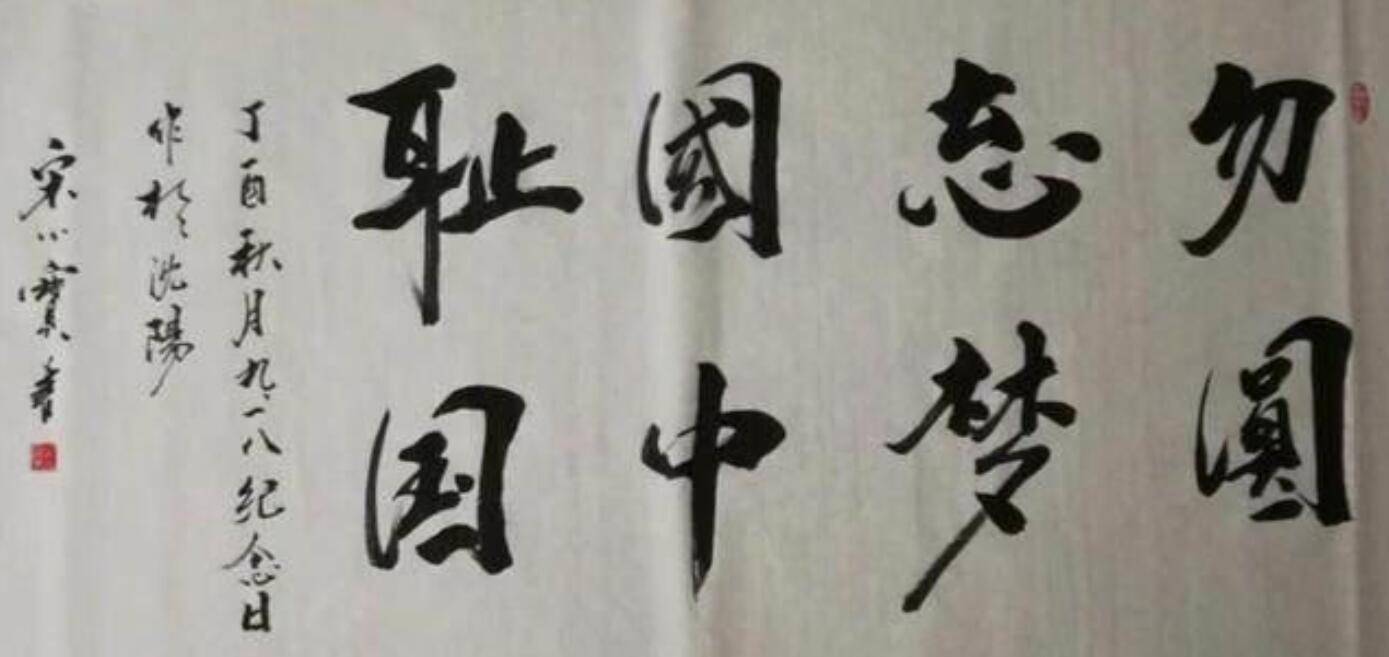 勿忘國耻
圓梦中国
丁酉秋月九一八纪念日
作於沈陽
宋小寳書